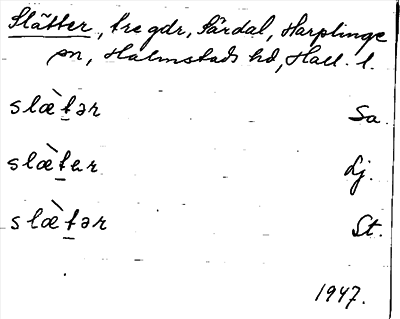 Slätter, tre gdr, Särdal, Harplinge
sn, Halmstads hd, Hall. l.
slæ̀t̲ər Sa.
slæ̀t̲ɐr Lj.
slæ̀t̲ər St.
1947.